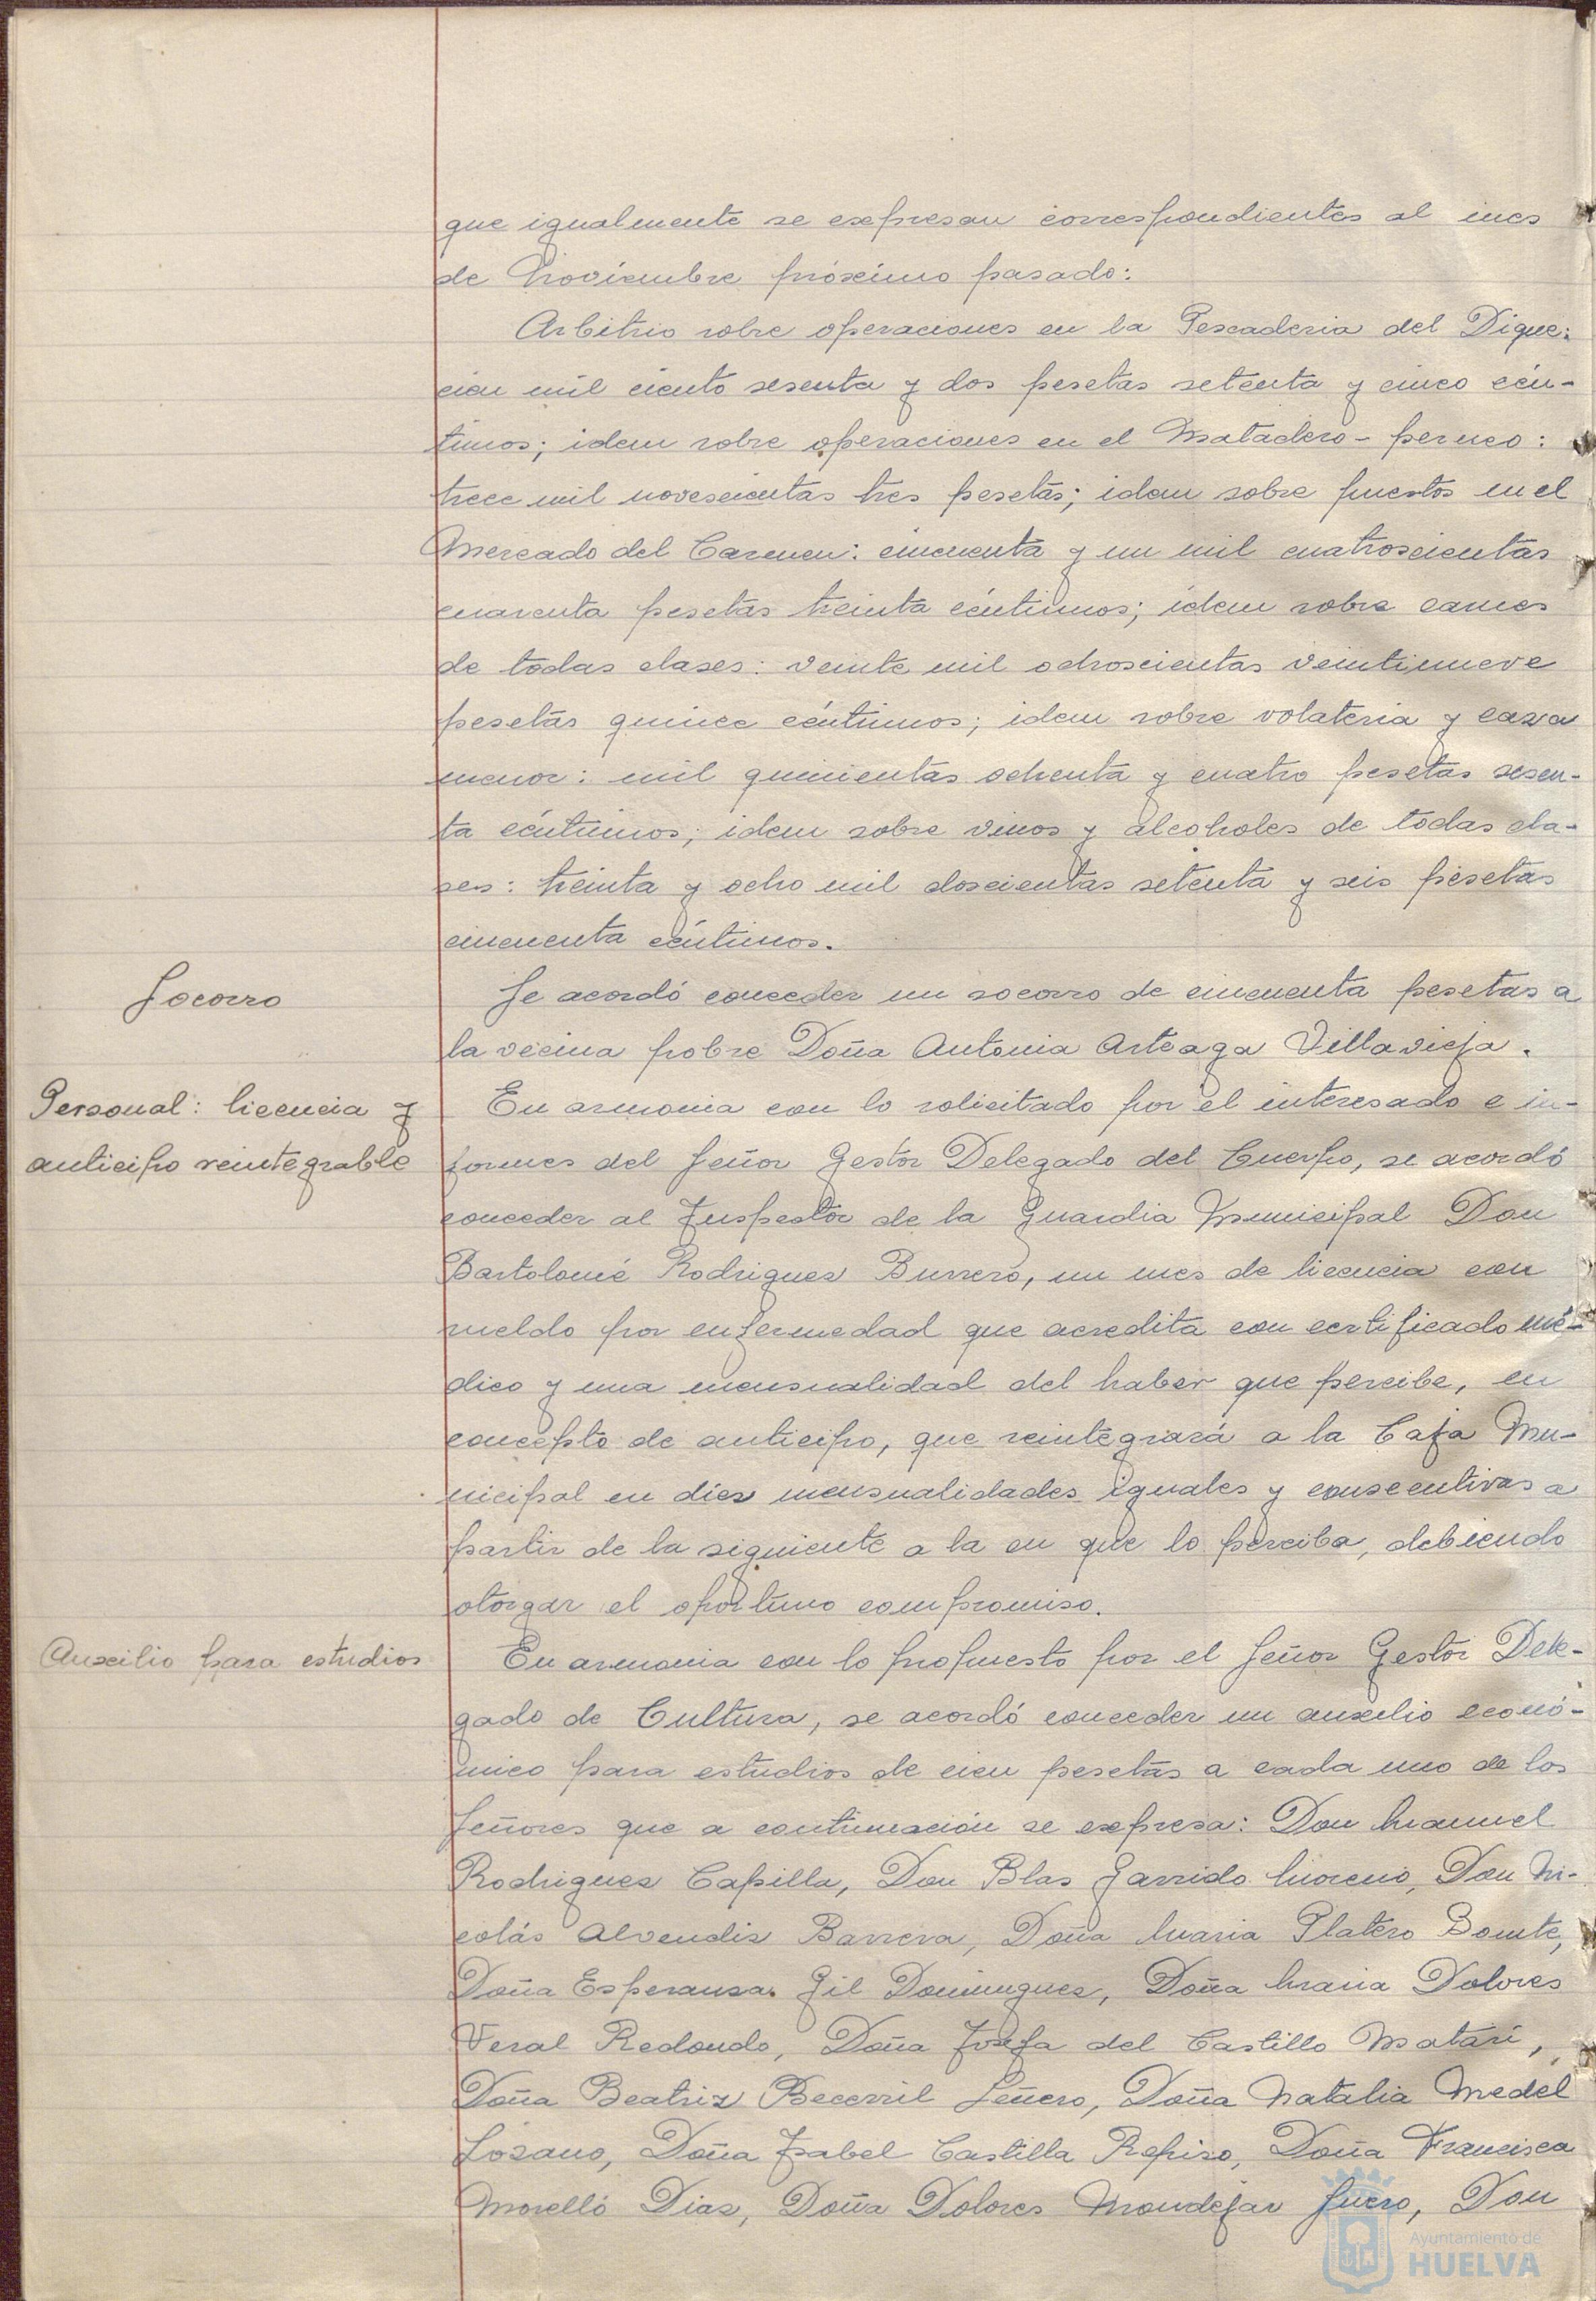 que igualmente se expresan correspondientes al mes
de Noviembre próximo pasado:
Arbitrio sobre operaciones en la Pescaderia del Dique:
cien mil ciento sesenta y dos pesetas setenta y cinco cén-
timos; idem sobre operaciones en el Matadero-perneo:
trece mil novescientas tres pesetas; idem sobre puestos en el
Mercado del Carmen: cincuenta y un mil cuatroscientas
cuarenta pesetas treinta céntimos; idem sobre carnes
de todas clases: veinte mil ochoscientas veintinueve
pesetas quince céntimos; idem sobre volateria y caza
menor: mil quinientas ochenta y cuatro pesetas sesen-
ta céntimos; idem sobre vinos y alcoholes de todas cla-
ses: treinta y ocho mil doscientas setenta y seis pesetas
cincuenta céntimos.
Socorro
Se acordó conceder un socorro de cincuenta pesetas a
la vecina pobre Doña Antonia Arteaga Villavieja.
Personal: licencia y
anticipo reintegrable
En armonia con lo solicitado por el interesado e in-
formes del Señor Gestor Delegado del Cuerpo, se acordó
conceder al Inspector de la Guardia Municipal Don
Bartolomé Rodriguez Burrero, un mes de licencia con
sueldo por enfermedad que acredita con certificado mé-
dico y una mensualidad del haber que percibe, en
concepto de anticipo, que reintegrará a la Caja Mu-
nicipal en diez mensualidades iguales y consecutivas a
partir de la siguiente a la en que lo perciba, debiendo
otorgar el oportuno compromiso.
Auxilio para estudios
En armonia con lo propuesto por el Señor Gestor Dele-
gado de Cultura, se acordó conceder un auxilio econó-
mico para estudios de cien pesetas a cada uno de los
Señores que a continuación se expresa: Don Manuel
Rodriguez Capilla, Don Blas Garrido Moreno, Don Ni-
colás Alvendiz Barrera, Doña Maria Platero
Doña Esperanza Gil Dominguez, Doña Maria Dolores
Veral Redondo, Doña Josefa del Castillo Matari,
Doña Beatriz Becerril Señero, Doña Natalia Medel
Lozano, Doña Isabel Castilla Repiso, Doña Francisca
Morelló Diaz, Doña Dolores Mondejar Suero, Don
Ayuntamiento de
HUELVA